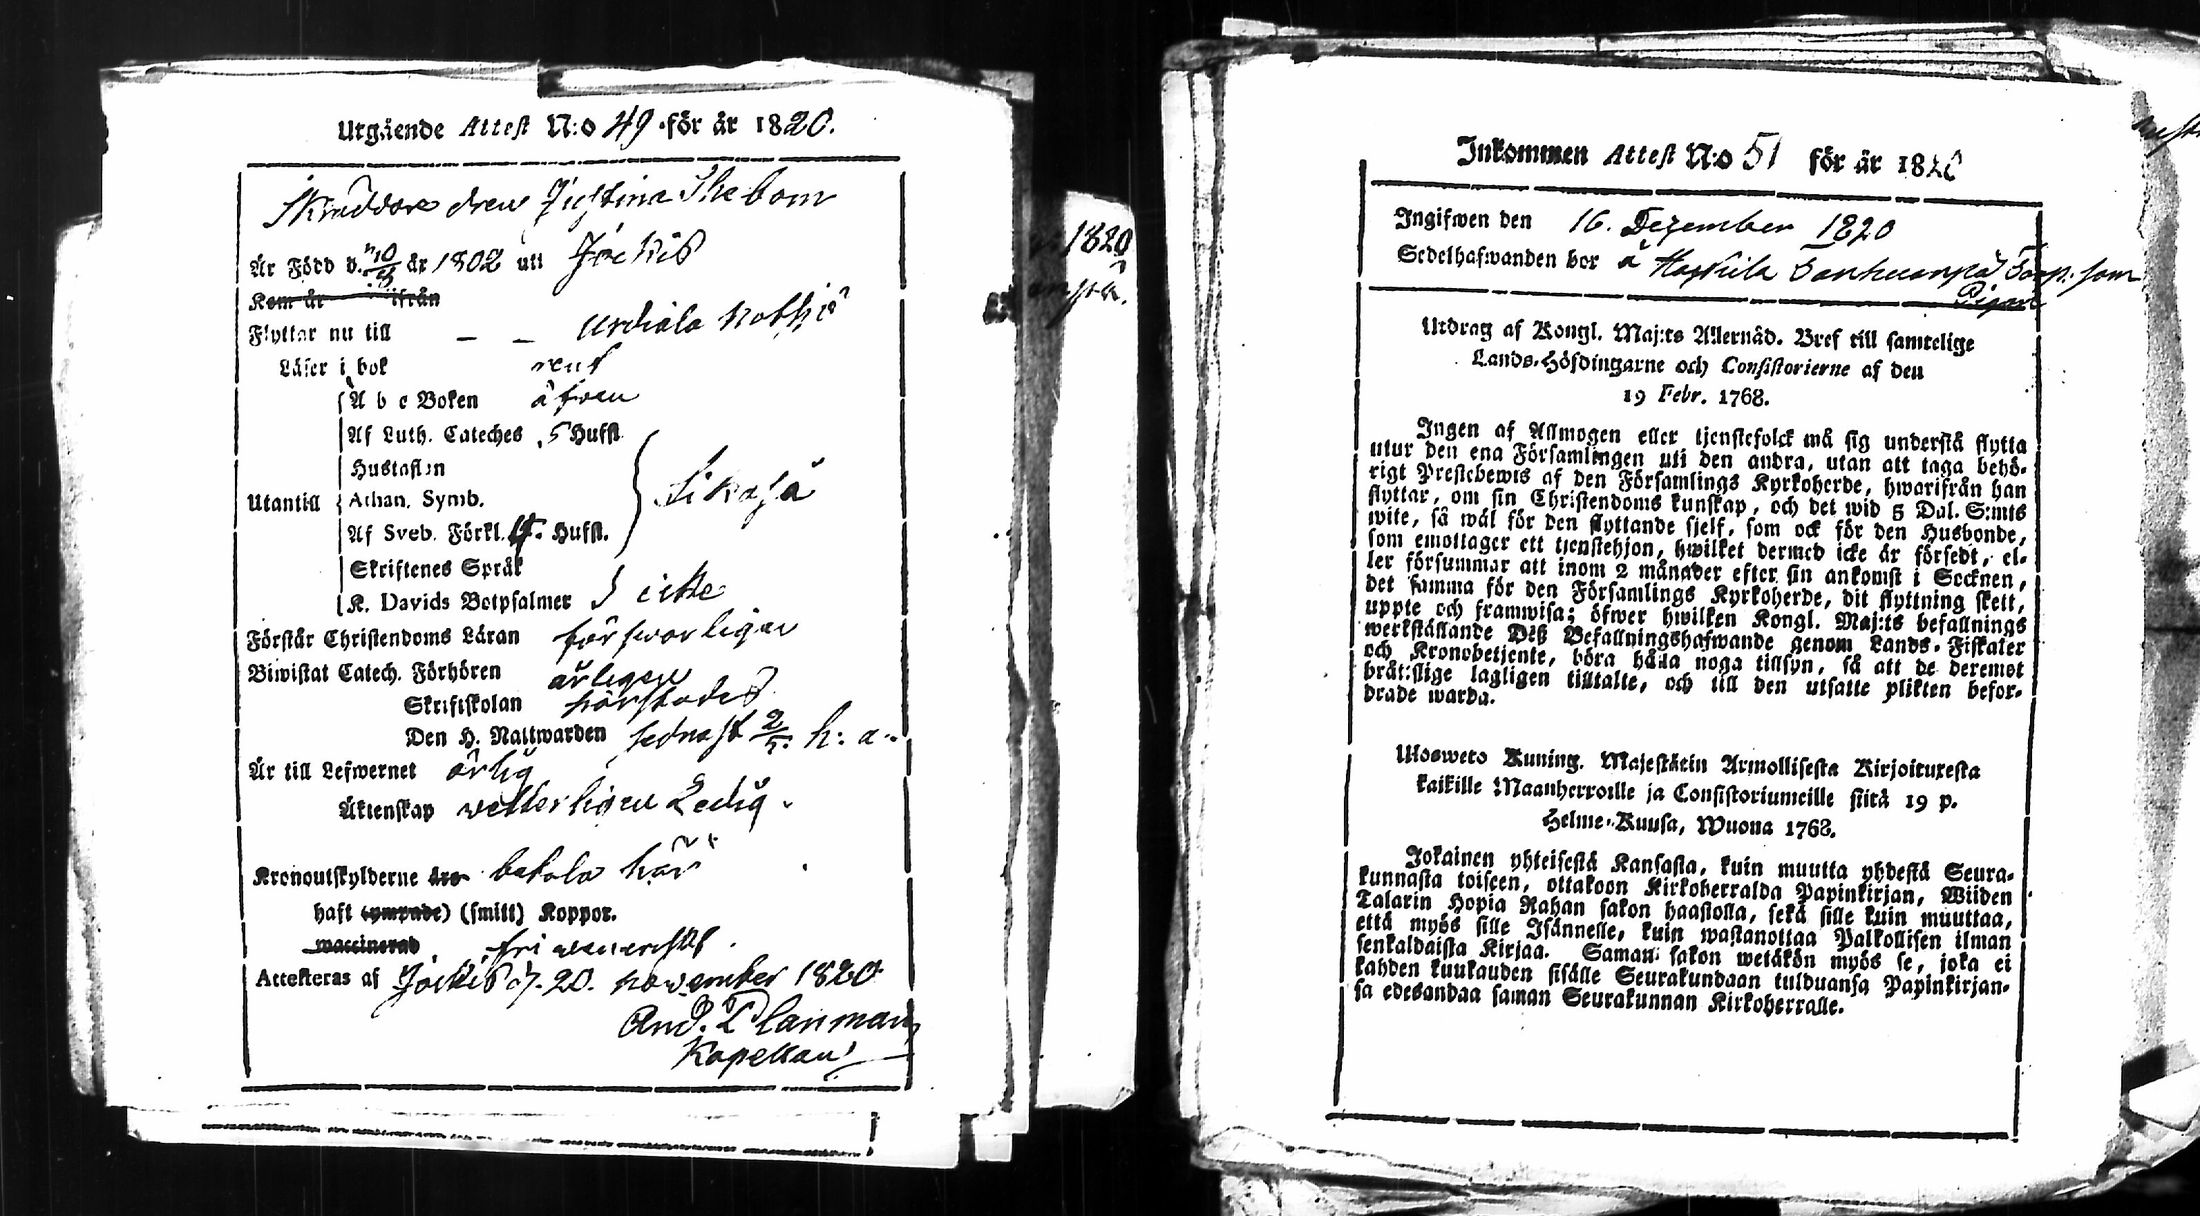 Utgående Attest N:o 49 för år 1820.
Skräddare drew Justina Shebom
Är Född d. 10/3 år 1802 uti Jockis
Kom år ifrån
Flyttar nu till — — Urdiala
Läser i bok rent
A b c Boken äfven
Af Luth. Cateches 5 Hufst
Hustaflan
Utantill Athan. Symb. likaså
Af Sveb. Förkl. 4. Hufst.
Skriftenes Språk
K. Davids Botpsalmer icke
Förstår Christendoms Läran försvarligen
Biwistat Catech. Förhören årligen
Skriftskolan
Den H. Nattwarden sednast 2/5. h: a..
Är till Lefwernet ärlig
Äktenskap vetterligen Ledig.
Kronoutskylderne äro betala här
haft (ympade) (smitt) Koppor.
waccinerad
Attesteras af Jockis d. 20. november 1820
And. Planman
Kapellan
1820
Inkommen Attest N:o 51 för år 1820
Ingifwen den 16. Dezember 1820
Sedelhafwanden bor å Torp. som
Piga
Utdrag af Kongl. Maj:ts Allernåd. Bref till samtelige
Lands-Höfdingarne och Consistorierne af den
19 Febr. 1768.
Ingen af Allmogen eller tjenstefolck må sig understå flytta
utur den ena Församlingen uti den andra, utan att taga behö-
rigt Prestebewis af den Församlings Kyrkoherde, hwarifrån han
flyttar, om sin Christendoms kunskap, och det wid 5 Dal. S:mts
wite, så wäl för den flyttande sjelf, som ock för den Husbonde,
som emottager ett tjenstehjon, hwilket dermed icke är försedt, el-
ler försummar att inom 2 månader efter sin ankomst i Socknen,
det samma för den Församlings Kyrkoherde, dit flyttning skett,
uppte och framwisa; öfwer hwilken Kongl. Maj:ts befallnings
werkställande Deß Befallningshafwande genom Lands-Fiskaler
och Kronobetjente, böra hålla noga tillsyn, så att de deremot
bråtslige lagligen tilltalte, och till den utsatte plikten befor-
drade warda.
Ulosweto Kuning. Majestätin Armollisesta Kirjoituxesta
kaikille Maanherroille ja Consistoriumeille siitä 19 p.
Helme-Kuusa, Wuona 1768.
Jokainen yhteisestä Kansasta, kuin muutta yhdestä Seura-
kunnasta toiseen, ottakoon Kirkoherralda Papinkirjan, Wiiden
Talarin Hopia Rahan sakon haastolla, sekä sille kuin muuttaa,
että myös sille Isännelle, kuin wastanottaa Palkollisen ilman
senkaldaista Kirjaa. Saman sakon wetäkön myös se, joka ei
kahden kuukauden sisälle Seurakundaan tulduansa Papinkirjan-
sa edesandaa saman Seurakunnan Kirkoherralle.